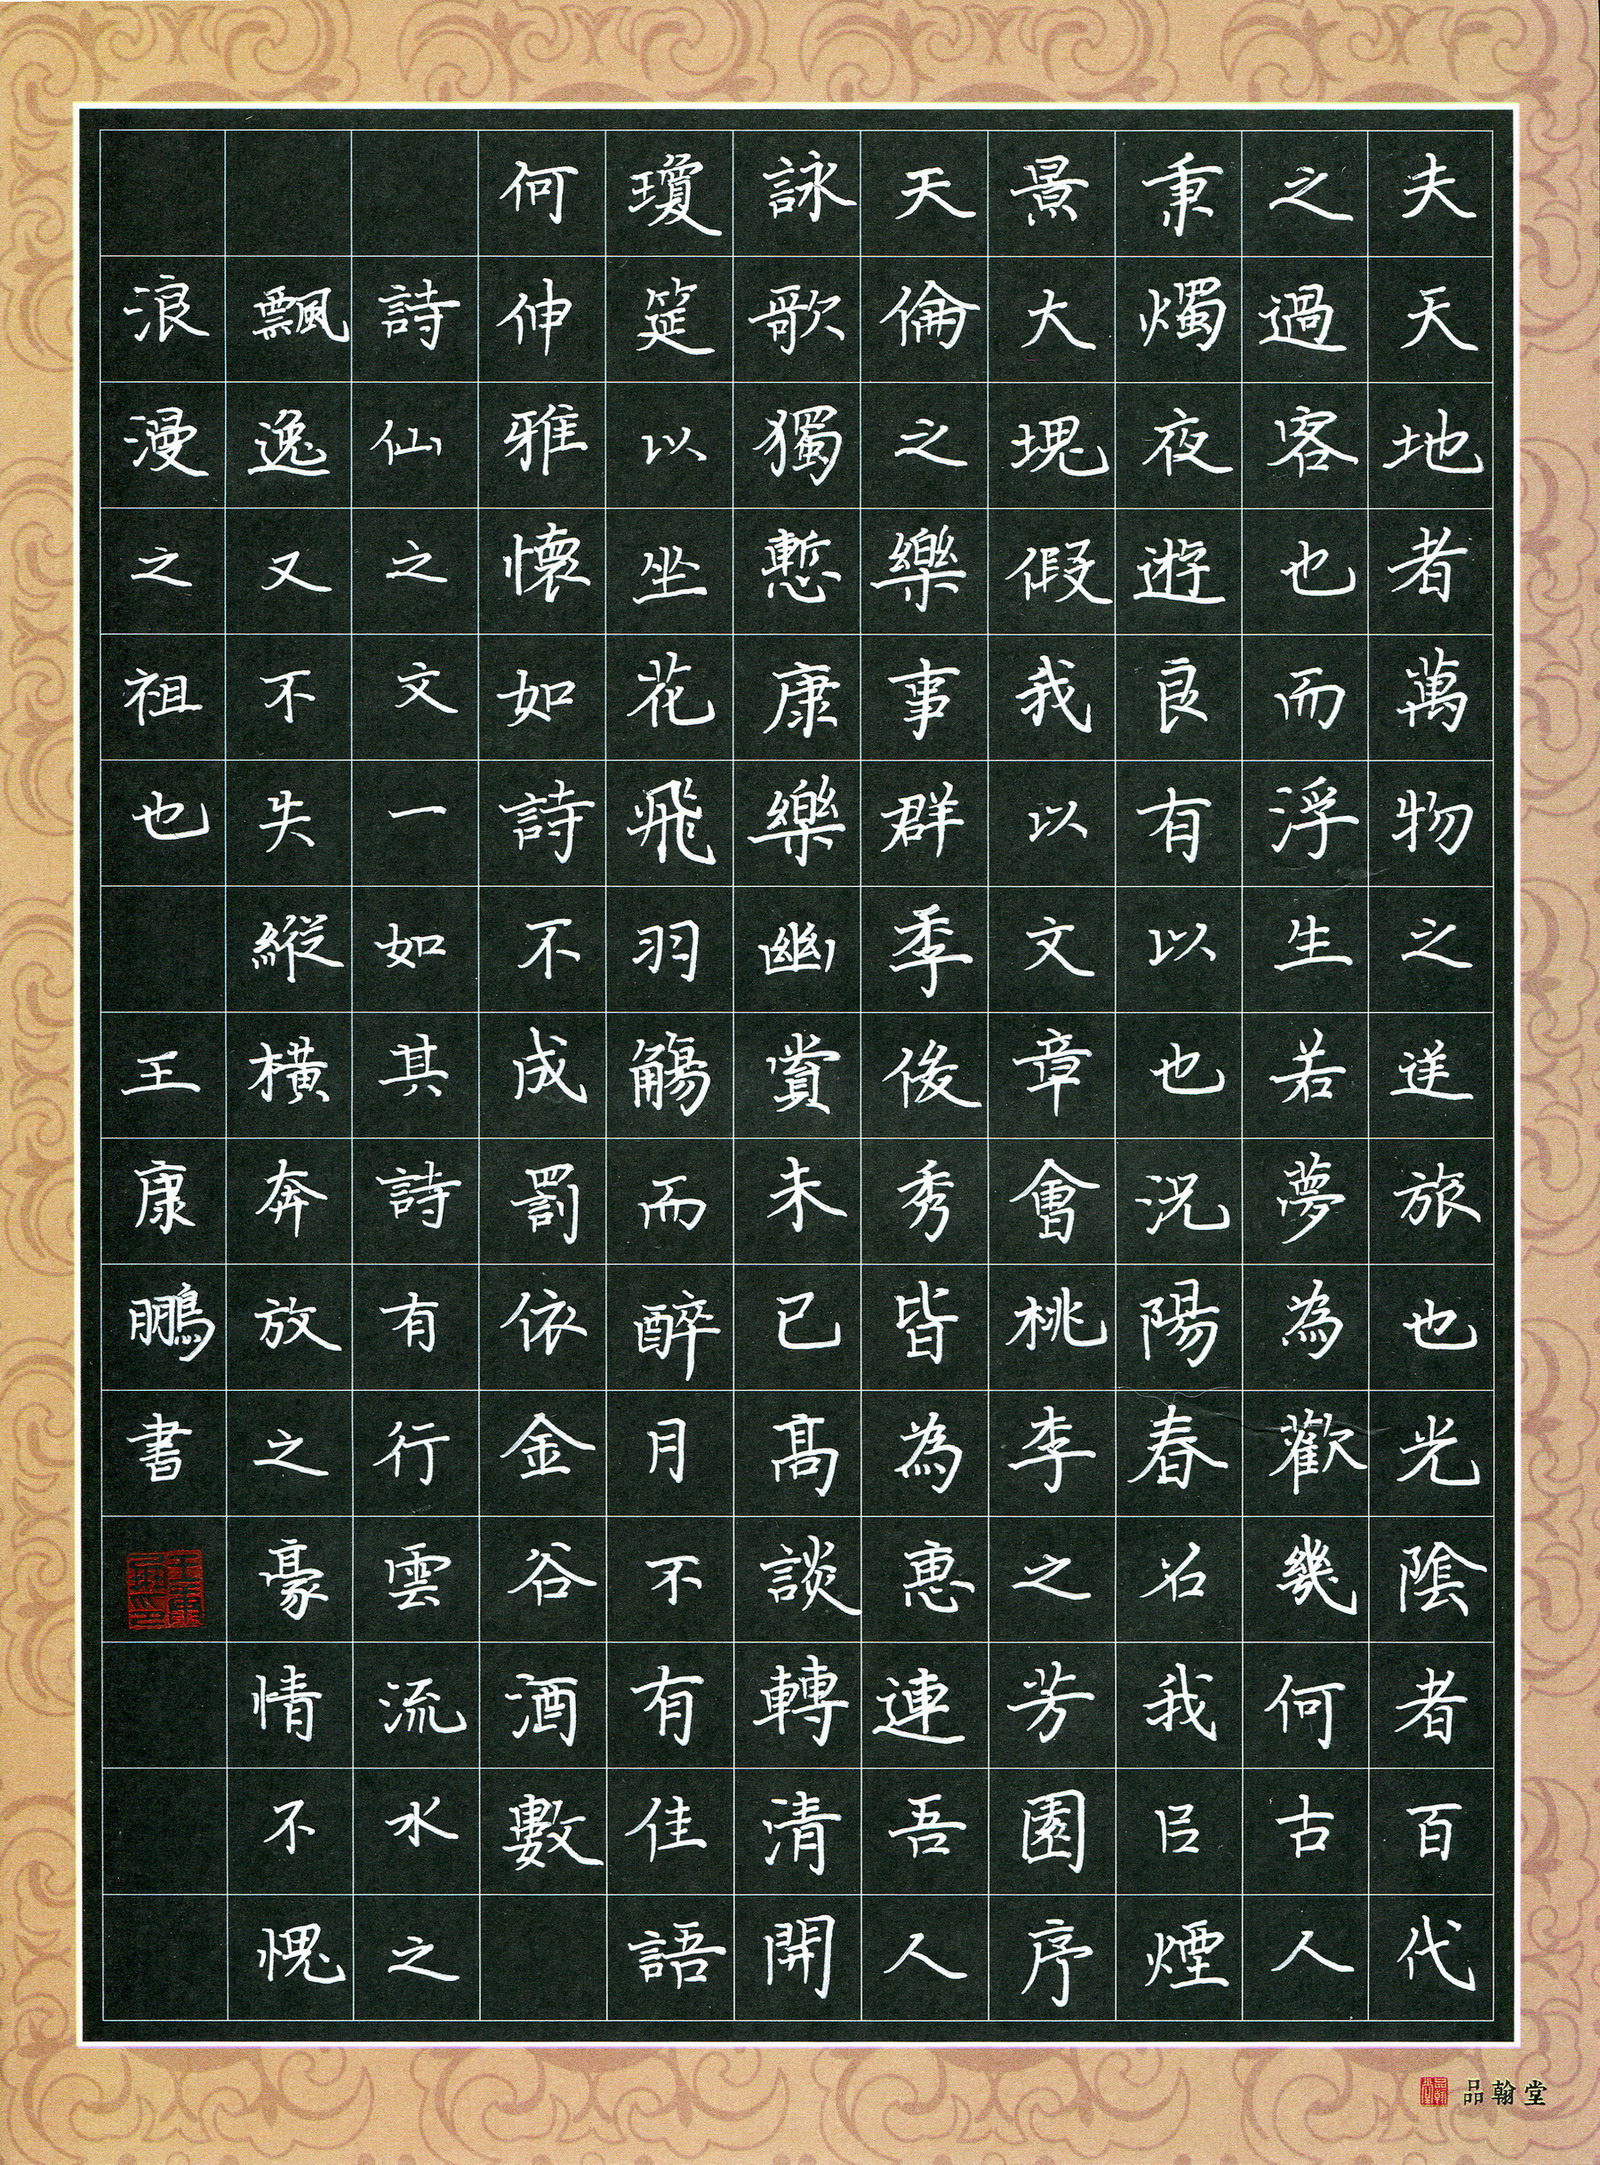 夫天地者萬物之逆旅也光陰者百代
之過客也而浮生若夢為歡幾何古人
秉燭夜遊良有以也況陽春召我以煙
景大塊假我以文章會桃李之芳園序
天倫之樂事群季俊秀皆為惠連吾人
詠歌獨慙康樂幽賞未已高談轉清開
瓊筵以坐花飛羽觴而醉月不有佳語
何伸雅懷如詩不成罰依金谷酒數
詩仙之文一如其詩有行雲流水之
飄逸又不失縱橫奔放之豪情不愧
浪漫之祖也 王康鵬書
品翰堂